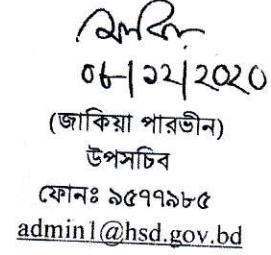 ০৮/১২/2020
(জাকিয়া পারভীন)
উপসচিব
ফোনঃ ৯৫৭৭৯৮৫
admin1@hsd.gov.bd